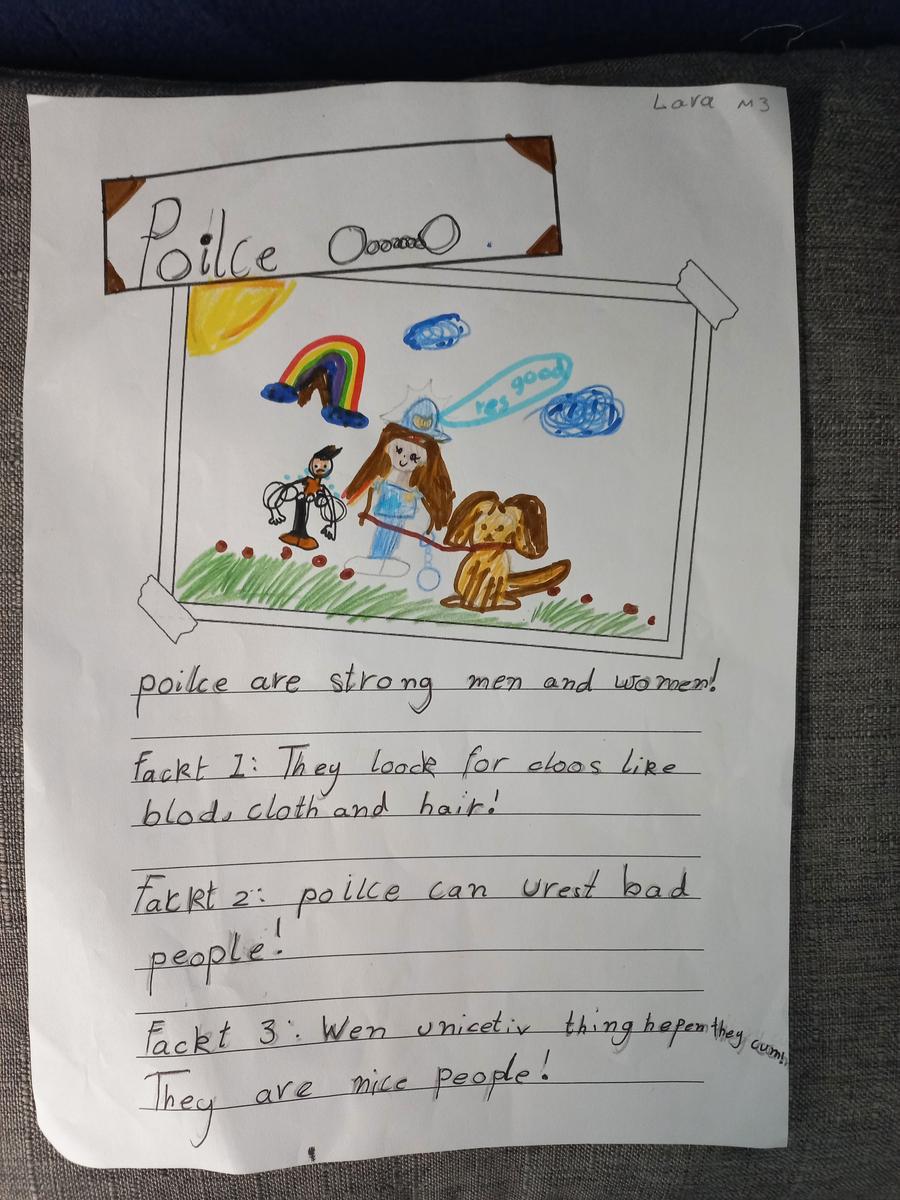 Lara M3
Poilce
yes good
poilce are strong men and women!
fackt 1: They loock for cloos like
blod, cloth and hair!
Fackt 2: poilce can urest bad
people!
Fackt 3: Wen unicetiv thing hepen they cum!
They are nice people!